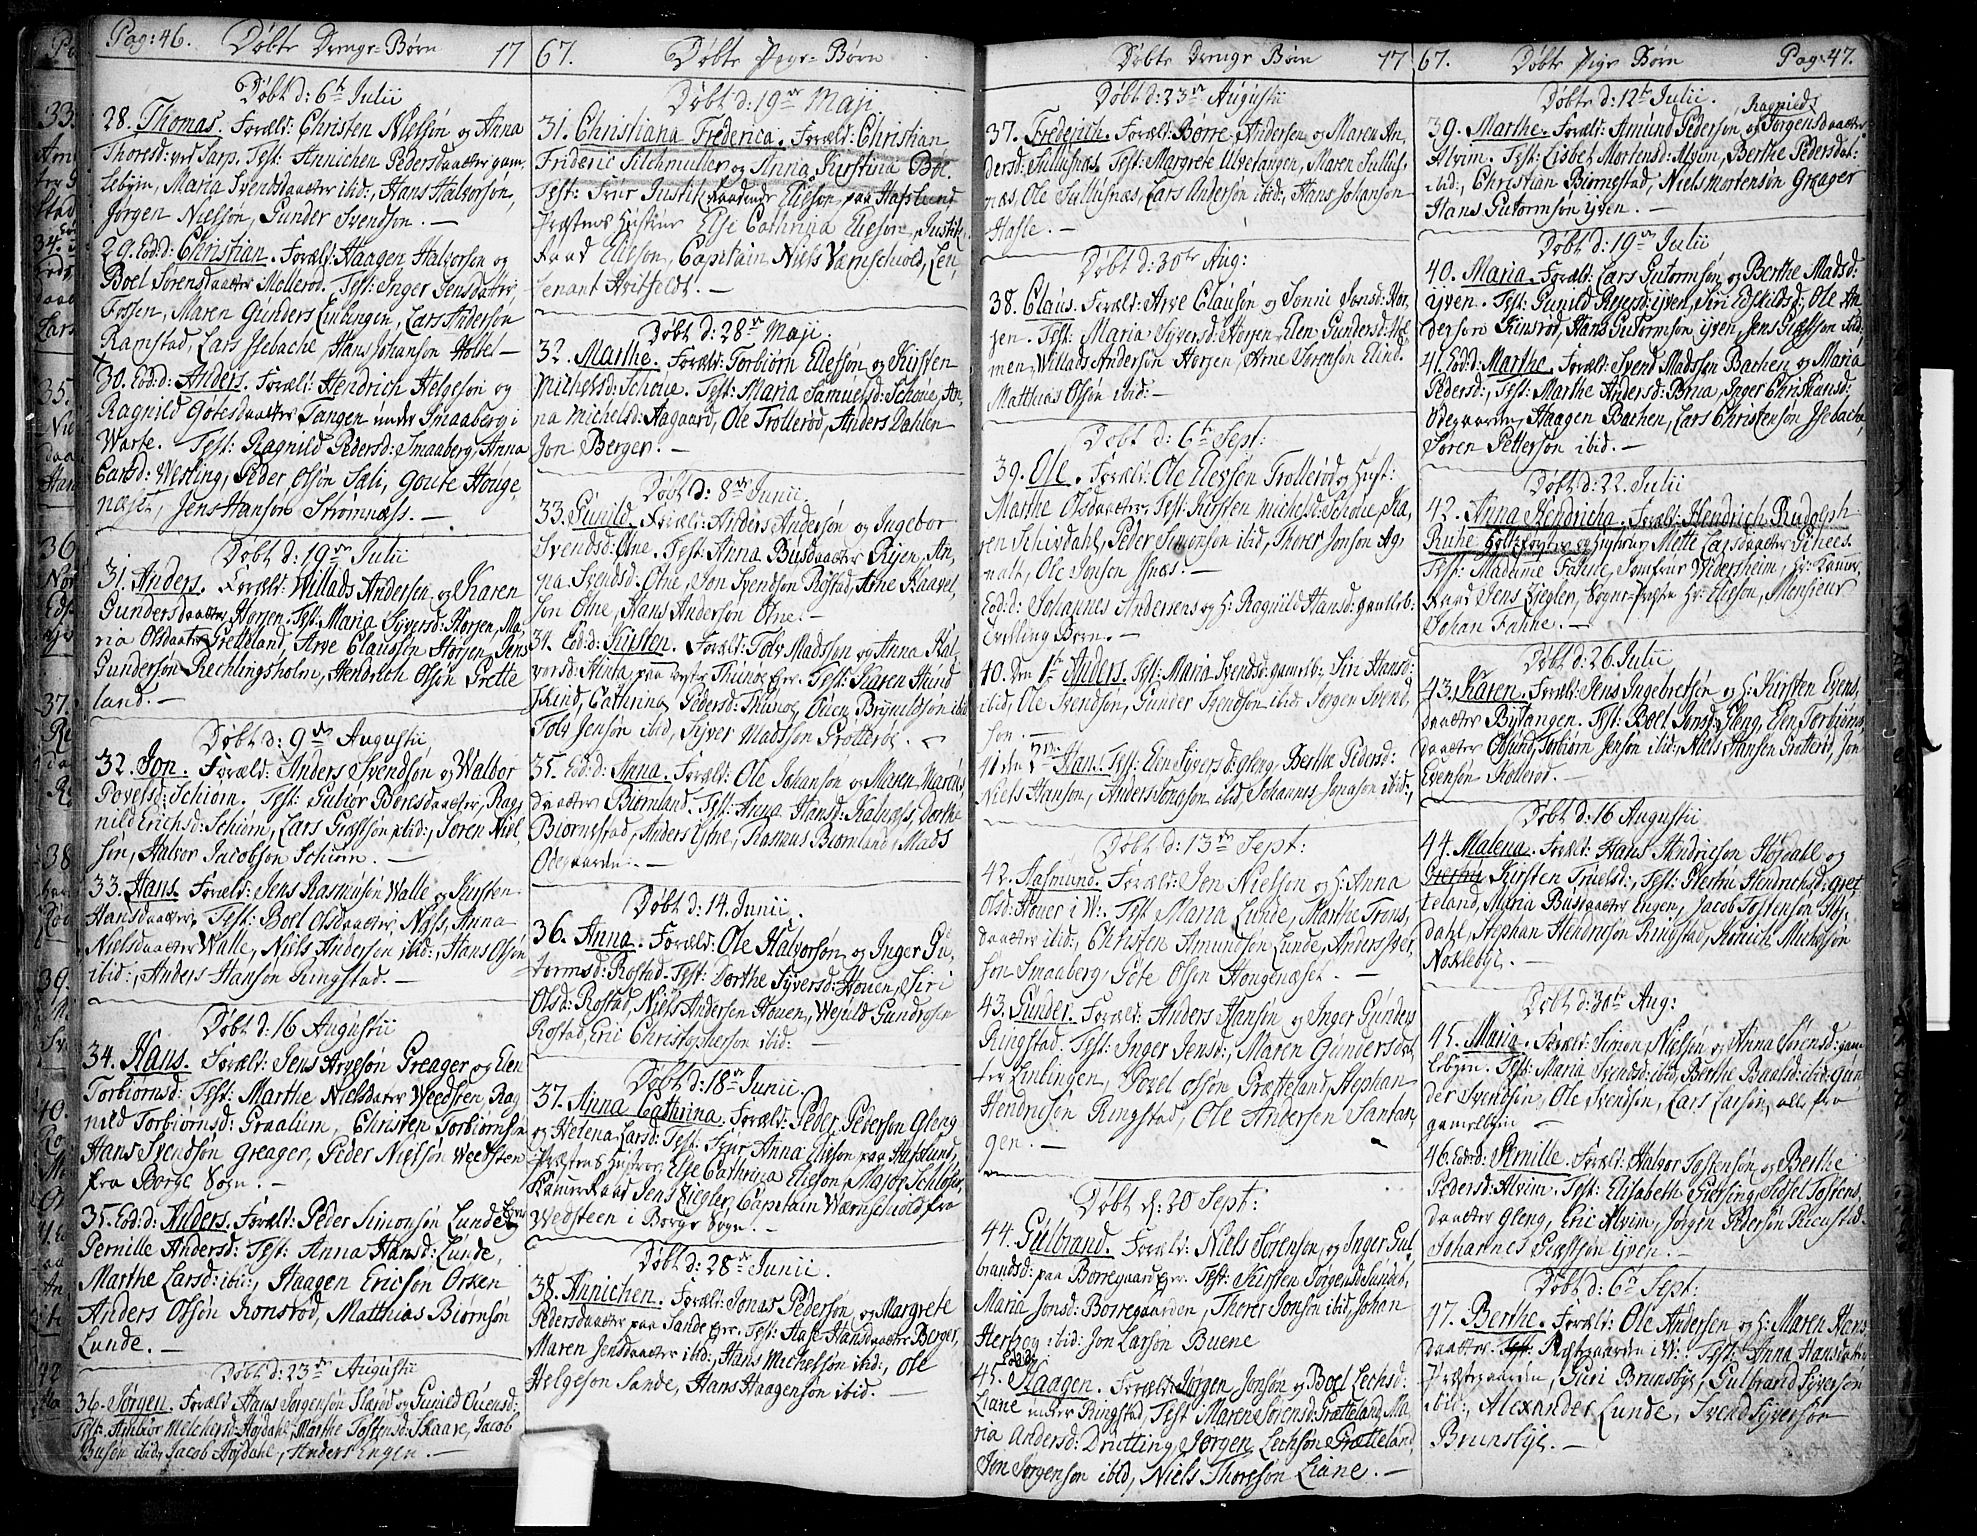 Pag: 46. Døbte Drenge-Børn 17
Døbt d: 6te Julii
28. Thomas. Foræld: Christen Nielsøn og Anna
Thoresd: ved Sarp. Test: Annichen Pedersdaatter gam-
lebyen, Maria Svendsdaatter ibid:, Hans Halvorsøn,
Jørgen Nielsøn, Gunder Svendsøn. —
29. Eod:d: Christian. Foræld: Haagen Halvorsøn og
Boel Sørensdaatter Mellerød. Test: Inger Jensdatter,
Fossen, Maren Gunders Linlingen, Lars Andersøn
Ramstad, Lars Isebache Hans Johansøn Holbel —
30. Eod:d: Anders. Foræld: Hendrich Helgesøn og
Ragnild Gøtesdaatter Tangen under Smaaberg i
Warte. Test: Ragnild Pedersd: Smaaberg, Anna
Carsd: Westing, Peder Olsøn Sali, Goute Houge
næset, Jens Hansøn Strømnæss. —
Døbt d: 19de Julii
31. Anders. Foræld: Willads Andersen og Karen
Gundersdaatter Horsen. Test: Maria Syversd: Horsen, Ma-
ria Olsdaatter Gretteland, Arve Claussen Horsen, Jens
Gundersøn Rechlingsholm, Hendrich Olsøn Grette
land. —
Døbt d: 9de Augustii
32. Jon. Foræld: Anders Svendsøn og Walbor
Povelsd: Schiørn. Test: Gulior Beresdaatter, Rag-
nild Erichsd: Schiørn, Lars Græsøn ibid:, Søren Niel
søn, Halvor Jacobsøn Schiørn. —
33. Hans. Foræld: Jens Rasmusøn Walle og Kirsten
Hansdaatter. Test: Boel Olsdaatter Næss, Anna
Nielsdaatter Walle, Niels Andersen ibid:, Hans Olsøn
ibid:, Anders Hansøn Ringstad. —
Døbt d: 16 Augustii
34. Hans. Foræld: Jens Arvesøn Greager og Elen
Torbiørnsd: Test: Marthe Nielsdater Weedsten, Rag-
nild Torbiørnsd: Graalum, Christen Torbiørnsøn
Hans Svendsøn Greager, Peder Nielsøn Weedsten
fra Borge Sogn. —
35. Eod:d: Anders. Foræld: Peder Simonsøn Lunde og
Pernille Andersd: Test: Anna Hansd: Lunde,
Marthe Larsd: ibid:, Haagen Ericsøn Orsken
Anders Olsøn Konsrod, Matthias Biørnsøn
Lunde. —
Døbt d: 23de Augustii
36. Jørgen. Foræld Hans Jørgensøn Skarød og Gunild Ouensd:
Test: Melchersd: Højdahl, Marthe Tostensd: Skaare, Jacob
Busøn ibid, Jacob Højdahl, Anders Engen. —
67. Døbte Pige-Børn
Døbt d: 19de Maji
31. Christiana Frederica. Foræld: Christian
Frideric Silchmuller og Anna Kirstina Boe.
Test: Frue Justitzraadinde Elieson, paa Hafslund
Præstens Hustrue Else Cathrina Elieson, Justitz
Raad Elieson, Capitain Niels Wærnschiold, Leu-
tenant Hvitfeldt. —
Døbt d: 28de Maji
32. Marthe. Foræld: Torbiørn Ellefsøn og Kirsten
Michelsd: Schoue. Test: Maria Samuelsd: Schoue, An-
na Michelsd: Aagaard, Ole Trollerød, Anders Dahlen
Jon Berger. —
Døbt d: 8de Junii
33. Gunild. Foræld: Anders Andersøn og Ingebor
Svendsd: Otne. Test: Anna Busdaatter Rijen, An-
na Svendsd: Otne, Jon Svendsøn Røstad, Arne Knavel-
søn Otne, Hans Andersøn Otne. —
34. Eod:d: Kirsten. Foræld: Tolv Madssøn og Anna Hal-
vorsd: Hunta paa nogter Thunøe Ejer. Test: Karen Hund
skind, Cathrina Pedersd: Thunøe, Ouen Brynildsøn ibid
Tolv Jensøn ibid, Syver Madssøn Grotterøe. —
35. Eod:d: Anna. Foræld: Ole Johansøn og Maren Marcus-
daatter Biørnland. Test: Anna Hansd: Kalnæss, Dorthe
Biørnstad, Anders Ystne, Rasmus Biørnland, Mads
Odegaarden. —
Døbt d: 14. Junii.
36. Anna. Foræld: Ole Halvorsøn og Inger Gu-
tormsd: Rostad. Test: Dorthe Syversd: Houen, Siri
Olsd: Rostad, Niels Andersen Houen, Wesild Gundersøn
Rostad, Eric Christophersøn ibid: —
Døbt d: 18de Junii.
37. Anna Cathrina. Foræld: Peder Pedersøn Gleng
og Helena Larsd: Test: Frue Anna Elieson paa Hafslund,
Præstens Hustrue Else Cathrina Elieson, Major Schløser,
Kammerraad Jens Ziegler, Capitain Wærnschiold fra
Wedsteen i Borge Sogn. —
Døbt d: 28de Junii.
38. Annichen. Foræld: Jonas Pedersøn og Margrete
Pedersdaatter paa Sande Ejer. Test: Aase Hansdaatter Berger,
Maren Jensdaatter ibid:, Hans Michelsøn ibid:, Ole
Helgesøn Sande, Hans Haagensøn ibid. —
Døbte Drenge Børn 17
Døbt d: 23de Augustii
37. Frederich. Foræld: Børre Andersen og Maren An-
dersd: Tullisnæs. Test: Margrete Ulvetangen, Maren Tullis-
næs, Ole Tullisnæs, Lars Andersøn ibid:, Hans Johansøn
Hasle. —
Døbt d: 30te Aug:
38. Claus. Foræld: Arve Clausøn og Jonnie Jonsd: Hor-
jen. Test: Maria Syversd: Horjen, Elen Gundersd: Hæ-
men, Willads Andersøn Horjen, Arne Torensøn Elind.
Matthias Olsøn ibid: —
Døbt d: 6te Sept:
39. Ole. Foræld: Ole Elevsøn Trollerød og Hust:
Marthe Olsdaatter. Test: Kirsten Michelsd: Schoue, Ka-
ren Schivdahl, Peder Simonsøn ibid, Thorer Jonsøn Ag-
nalt, Ole Jonsøn Isnæs. —
Eod:d: Johannes Andersens og H: Ragnild Hansd: gamleb:
Tvilling Børn. —
40. Den 1te Anders. Test: Maria Svendsd: gamleb:, Siri Hansd:
ibid, Ole Svendsøn, Gunder Svendsøn ibid: Jørgen Svend
søn. —
41 den 2den Han. Test: Elen Syversd: Gleng, Berthe Pedersd:
Niels Hansøn, Anders Jonasøn ibid, Johannes Jonasøn ibid:,
Døbt d: 13de Sept:
42. Aasmund. Foræld: Jen Nielsøn og H: Anna
Olsd: Houer i W:. Test Maria Lunde, Marthe Trons-
daatter ibid:, Christen Amundsøn Lunde, Anders Iver
søn Smaaberg, Gote Olsen Hougenæset. —
43. Gunder. Foræld: Anders Hansøn og Inger Gunders
Ringstad. Test: Inger Jensd:, Maren Gundersdat-
ter Linlingen, Povel Olsøn Grætteland, Stephan
Hendricsøn Ringstad, Ole Andersen Santan-
gen. —
Døbt d: 20 Sept:
44. Gulbrand. Foræld: Niels Sørensøn, og Inger Gul-
brandsd: paa Borregaard Ejer. Test: Kirsten Jørgensd Sundet,
Maria Jonsd: Borregaarden, Thorer Jonsøn ibid, Johan
Hertzog ibid: Jon Larsøn Buene
45. Eod:d: Haagen. Foræld: Jørgen Jonsøn og Boel Lechsd:
Liane under Ringstad, Test Maren Sørensd: Grætteland, Ma-
ria Andersd: Drutling, Jørgen Lechsøn Grætteland
Jon Jørgensøn ibid, Niels Thoresøn Liane. —
67. Døbte Pige Børn Pag: 47.
Døbte d: 12te Julii.
39. Marthe. Foræld: Amund Pedersøn og Ragnild Jørgensdaatter
Alvim. Test: Lisbet Mortensd: Alvim, Berthe Pedersdat:
ibid:, Christian Biørnestad, Niels Mortensøn Greager
Hans Gutormsøn Yven. —
Døbt d: 19de Julii
40. Maria. Foræld: Lars Gutormsøn og Berthe Madsd:
Yven. Test: Gunild Resesd: Yven, Siri Edskildsd:, Ole An-
dersøn Kinsrød, Hans Gutormsøn Yven, Jens Giestsøn ibid:
41. Eod:d: Marthe. Foræld: Svend Madssøn Bachen og Maria
Pedersd:, Test: Marthe Andersd: Brna, Inger Christiansd:
Odegaarden, Haagen Bachen, Lars Christensøn Isebache,
Søren Pettersøn ibid. —
Døbt d: 22. Julii
42. Anna Hendricha. Foræld: Hendrich Rudolph
Ruhe Holtzfogter og Hustrue Mette Larsdaatter Sinees.
Test: Madame Fahne, Jomfrue Widersheim, Hr: Kamer-
Raad Jens Ziegler, Sogne-Præst Hr: Elieson, Monsieur
Johan Fahne. —
Døbt d: 26. Julii
43. Karen. Foræld: Jens Ingebretsøn og H: Kirsten Evens-
daatter Bytangen. Test: Boel Jonsd: Gleng, Elen Torbiørns-
daatter Olsund, Torbiørn Jensøn ibid:, Niels Hansen Grotterød, Jon
Evensøn Kollerød. —
Døbt d: 16 Augustii
44. Malena. Foræld: Hans Andriesøn Højdahl og
Kirsten Truelsd:, Test: Pternne Hendrichsd: Gret
teland, Maria Busdaatter Engen, Jacob Tostensøn Høj-
dahl, Stephan Hendricsøn Ringstad, Henrich Michelsøn
Noklebye. —
Døbt d: 30te Aug:
45. Maria. Foræld: Simon Nielsøn og Anna Sørensd: gam-
lebyen. Test: Maria Svendsd: ibid, Berthe Baalsd: ibid: Gun
der Svendsøn, Ole Svendsøn, Lars Larsøn, alle fra
gamelbyen —
46. Eod:d: Pernille. Foræld: Halvor Tostensøn og Berthe
Pedersd: Alvim. Test: Elisabeth Giessing, Sidsel Tostens-
daatter Gleng, Eric Alvim, Jørgen Pedersøn Rienstad
Johannes Giestsøn Yven. —
Døbt d: 6te Sept:
47. Berthe. Foræld: Ole Andersen og H: Maren Hans-
daatter. Rystgaarden i W: Test: Anna Hansdatter
Præstegaarden, Guri Brunsbye, Gulbrand Syversøn
ibid:, Alexander Lunde, Svend Syversøn
Brunsbye. —